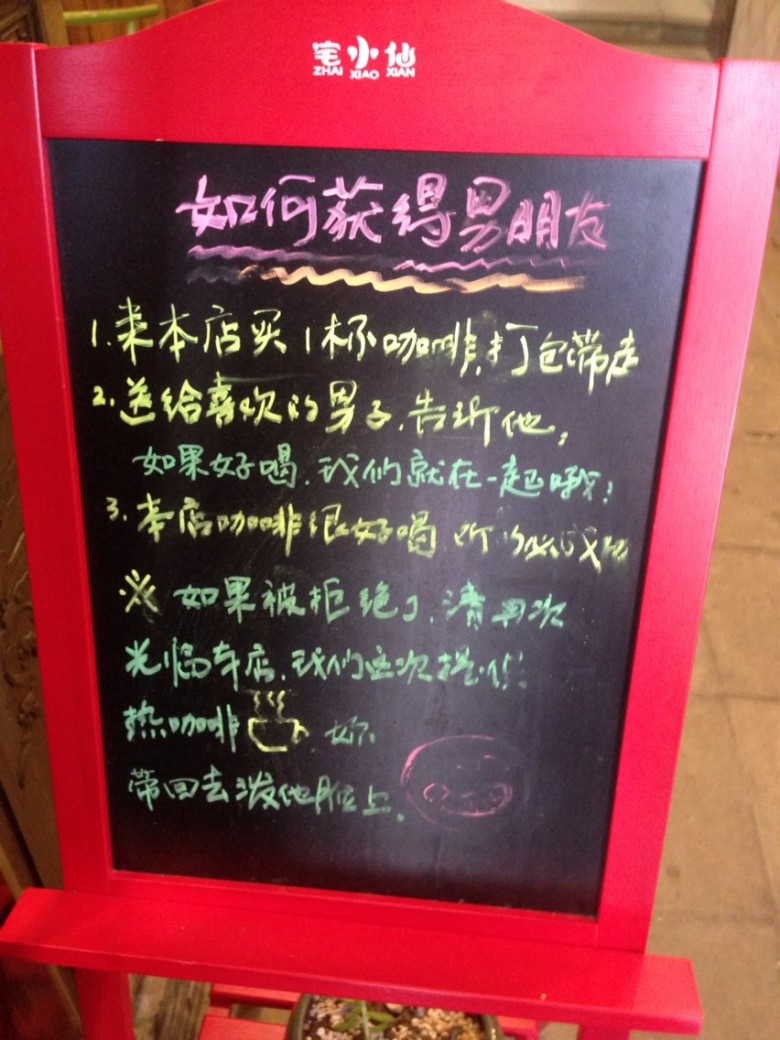 宅小仙
ZHAI XIAO XIAN
如何获得男朋友
1.来本店买1杯咖啡,打包带走
2.送给喜欢的男子,告诉他,
如果好喝,我们就在一起哦!
3.本店咖啡很好喝,所以必成功
※如果被拒绝了,请再次
光临本店,我们这次提供
热咖啡 你
带回去泼他脸上。